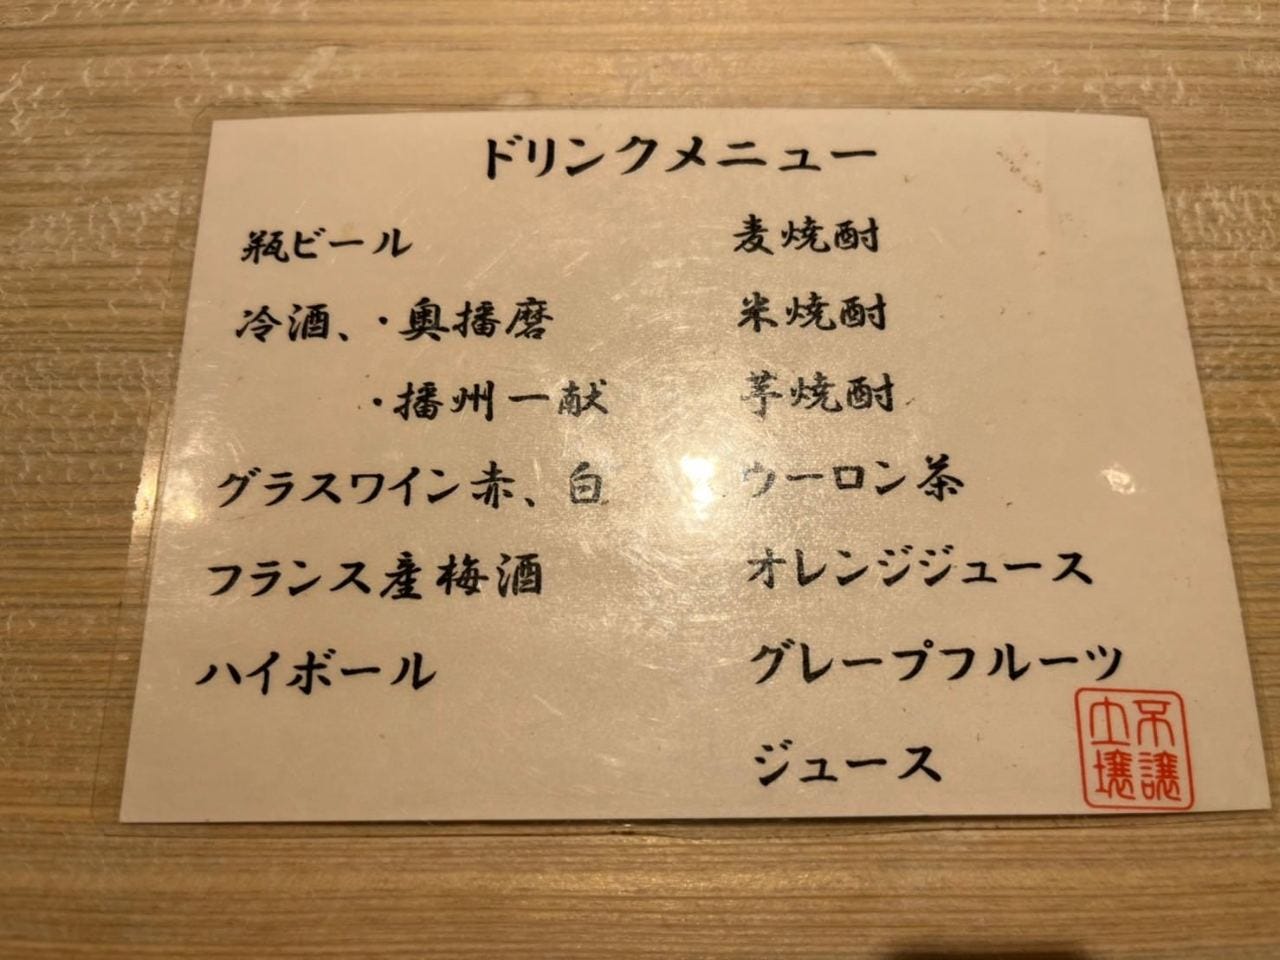 ドリンクメニュー
瓶ビール
冷酒、・奥播磨
・播州一献
グラスワイン赤、白
フランス産梅酒
ハイボール
麦焼酎
米焼酎
芋焼酎
ウーロン茶
オレンジジュース
グレープフルーツ
ジュース
不譲
土壌